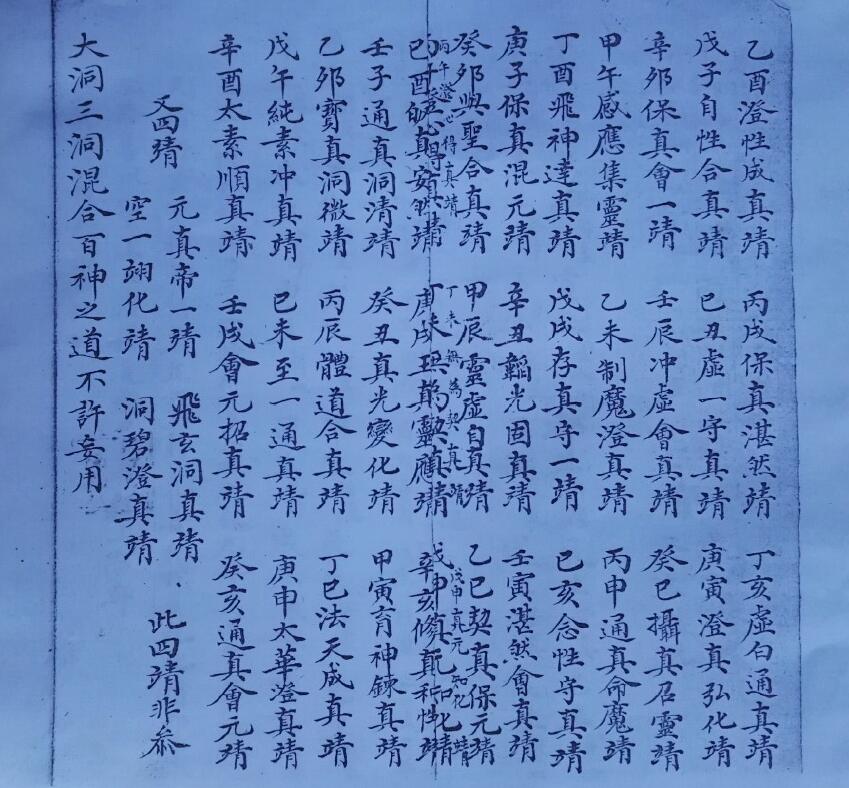 乙酉澄性成真靖 丙戌保真湛然靖 丁亥虛白通真靖
戊子自性合真靖 己丑虛一守真靖 庚寅澄真弘化靖
辛卯保真會一靖 壬辰冲虛會真靖 癸巳攝真召靈靖
甲午感應集靈靖 乙未制魔澄真靖 丙申通真命魔靖
丁酉飛神達真靖 戊戌存真守一靖 己亥念性守真靖
庚子保真混元靖 辛丑韜光固真靖 壬寅湛然會真靖
癸卯與聖合真靖 甲辰靈虛自真靖 乙巳契真保元靖
丙午澄心得真靖 丁未無為契真靖 戊申真元知化靖
己酉真安靖 庚戌靈應靖 辛亥脩真和性靖
壬子通真洞清靖 癸丑真光變化靖 甲寅育神鍊真靖
乙卯寶真洞微靖 丙辰體道合真靖 丁巳法天成真靖
戊午純素冲真靖 己未至一通真靖 庚申太華澄真靖
辛酉太素順真靖 壬戌會元招真靖 癸亥通真會元靖
又四靖 元真帝一靖 飛玄洞真靖
空一翊化靖 洞碧澄真靖 此四靖非叅
大洞三洞混合百神之道不許妄用